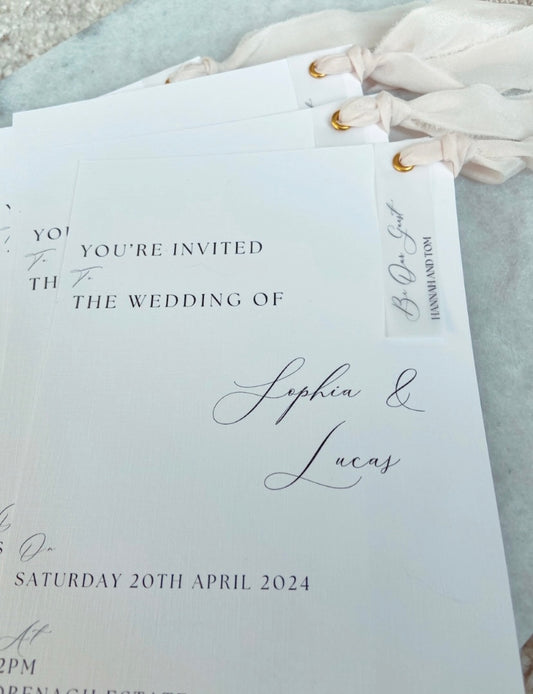 YOU'RE INVITED
To
THE WEDDING OF
Sophia &
Lucas
On
SATURDAY 20TH APRIL 2024
At
2PM
Be Our Guest
HANNAH AND TOM
YO
To
TH